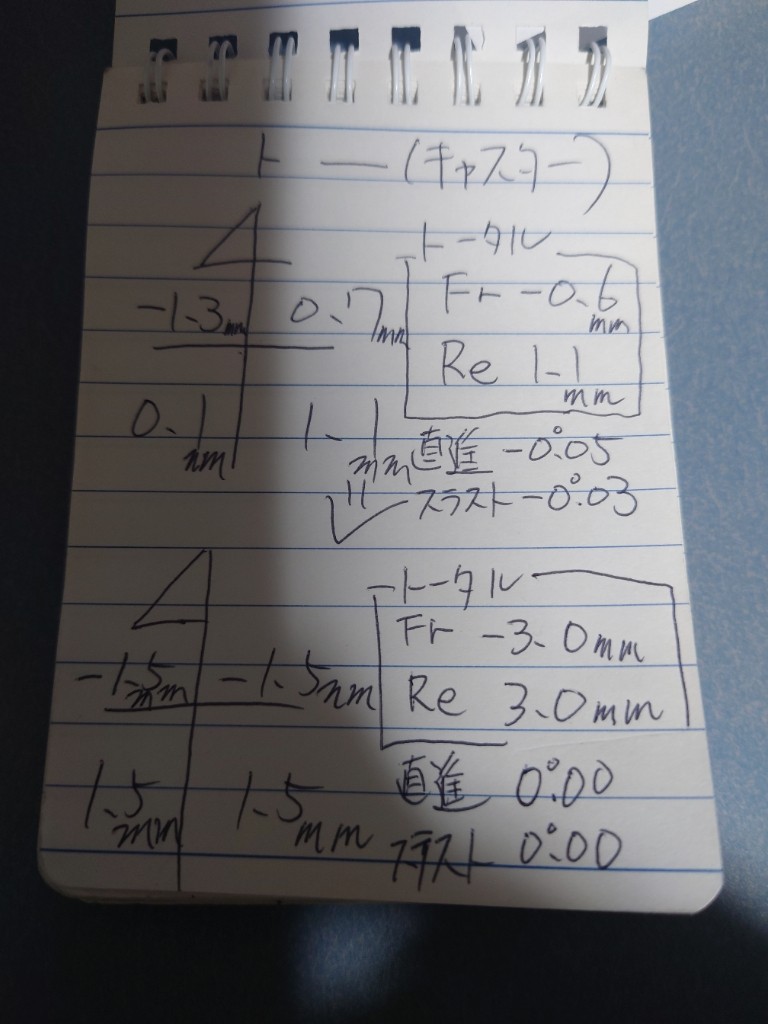 トー(キャスター)
トータル
-1.3mm 0.7mm Fr -0.6mm
Re 1.1mm
0.1mm 1.1mm 直進 -0°.05
スラスト -0°.03
トータル
Fr -3.0mm
-1.5mm -1.5mm Re 3.0mm
1.5mm 1.5mm 直進 0°.00
スラスト 0°.00